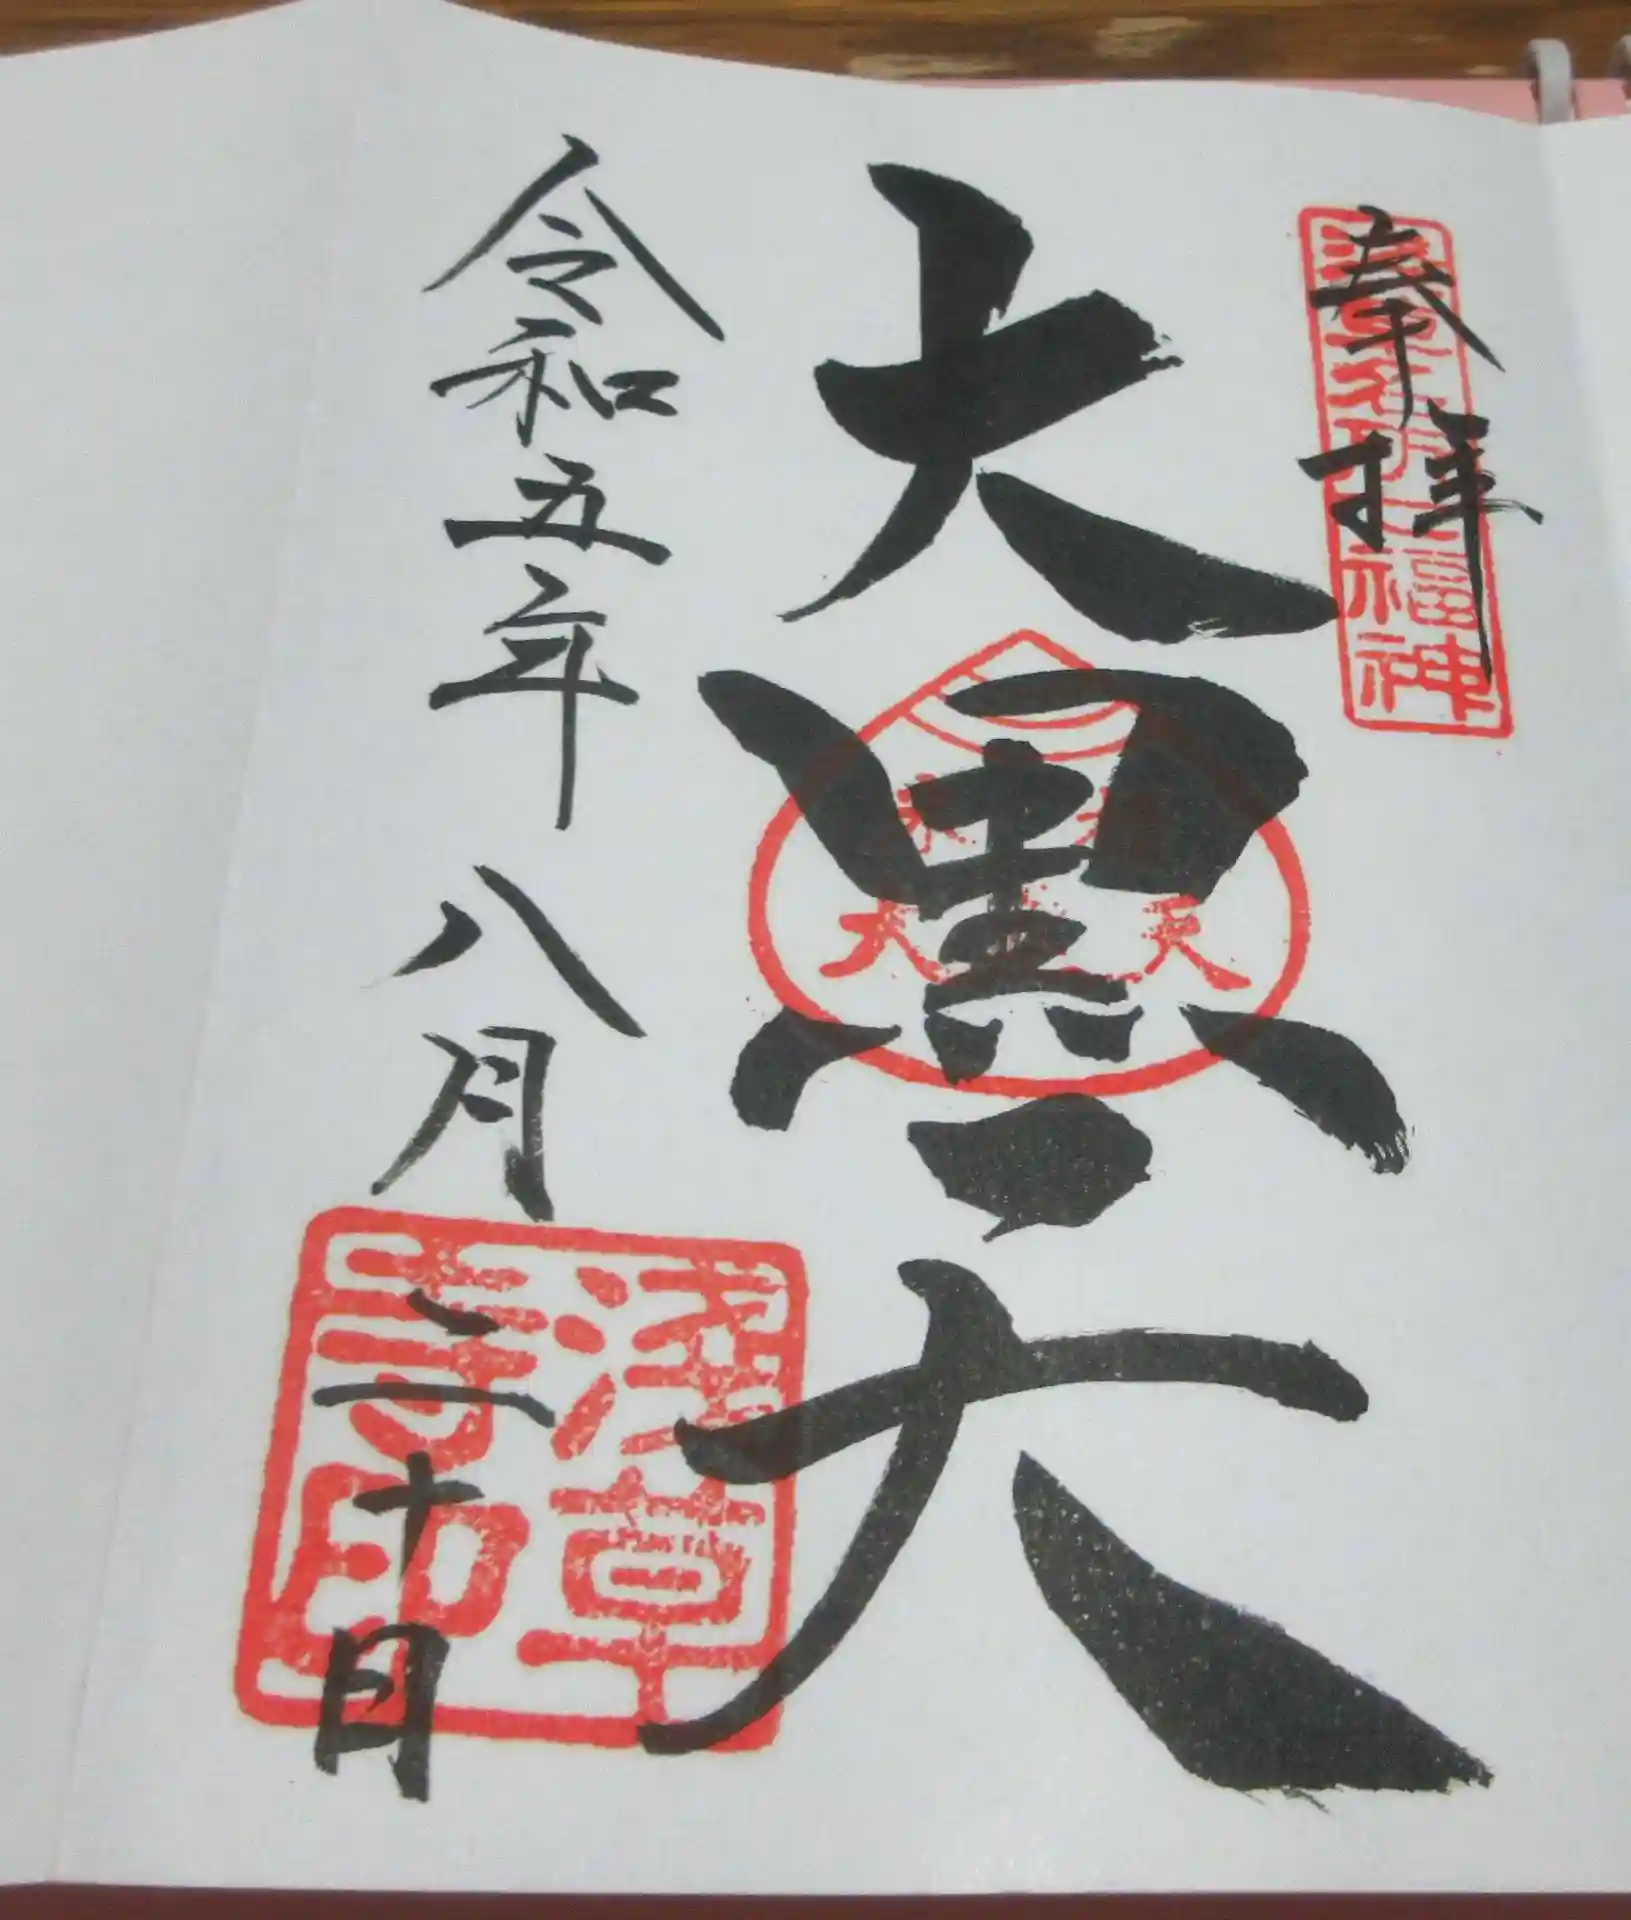 奉拝
浅草名所七福神
大黒天
令和五年八月二十日
浅草寺印